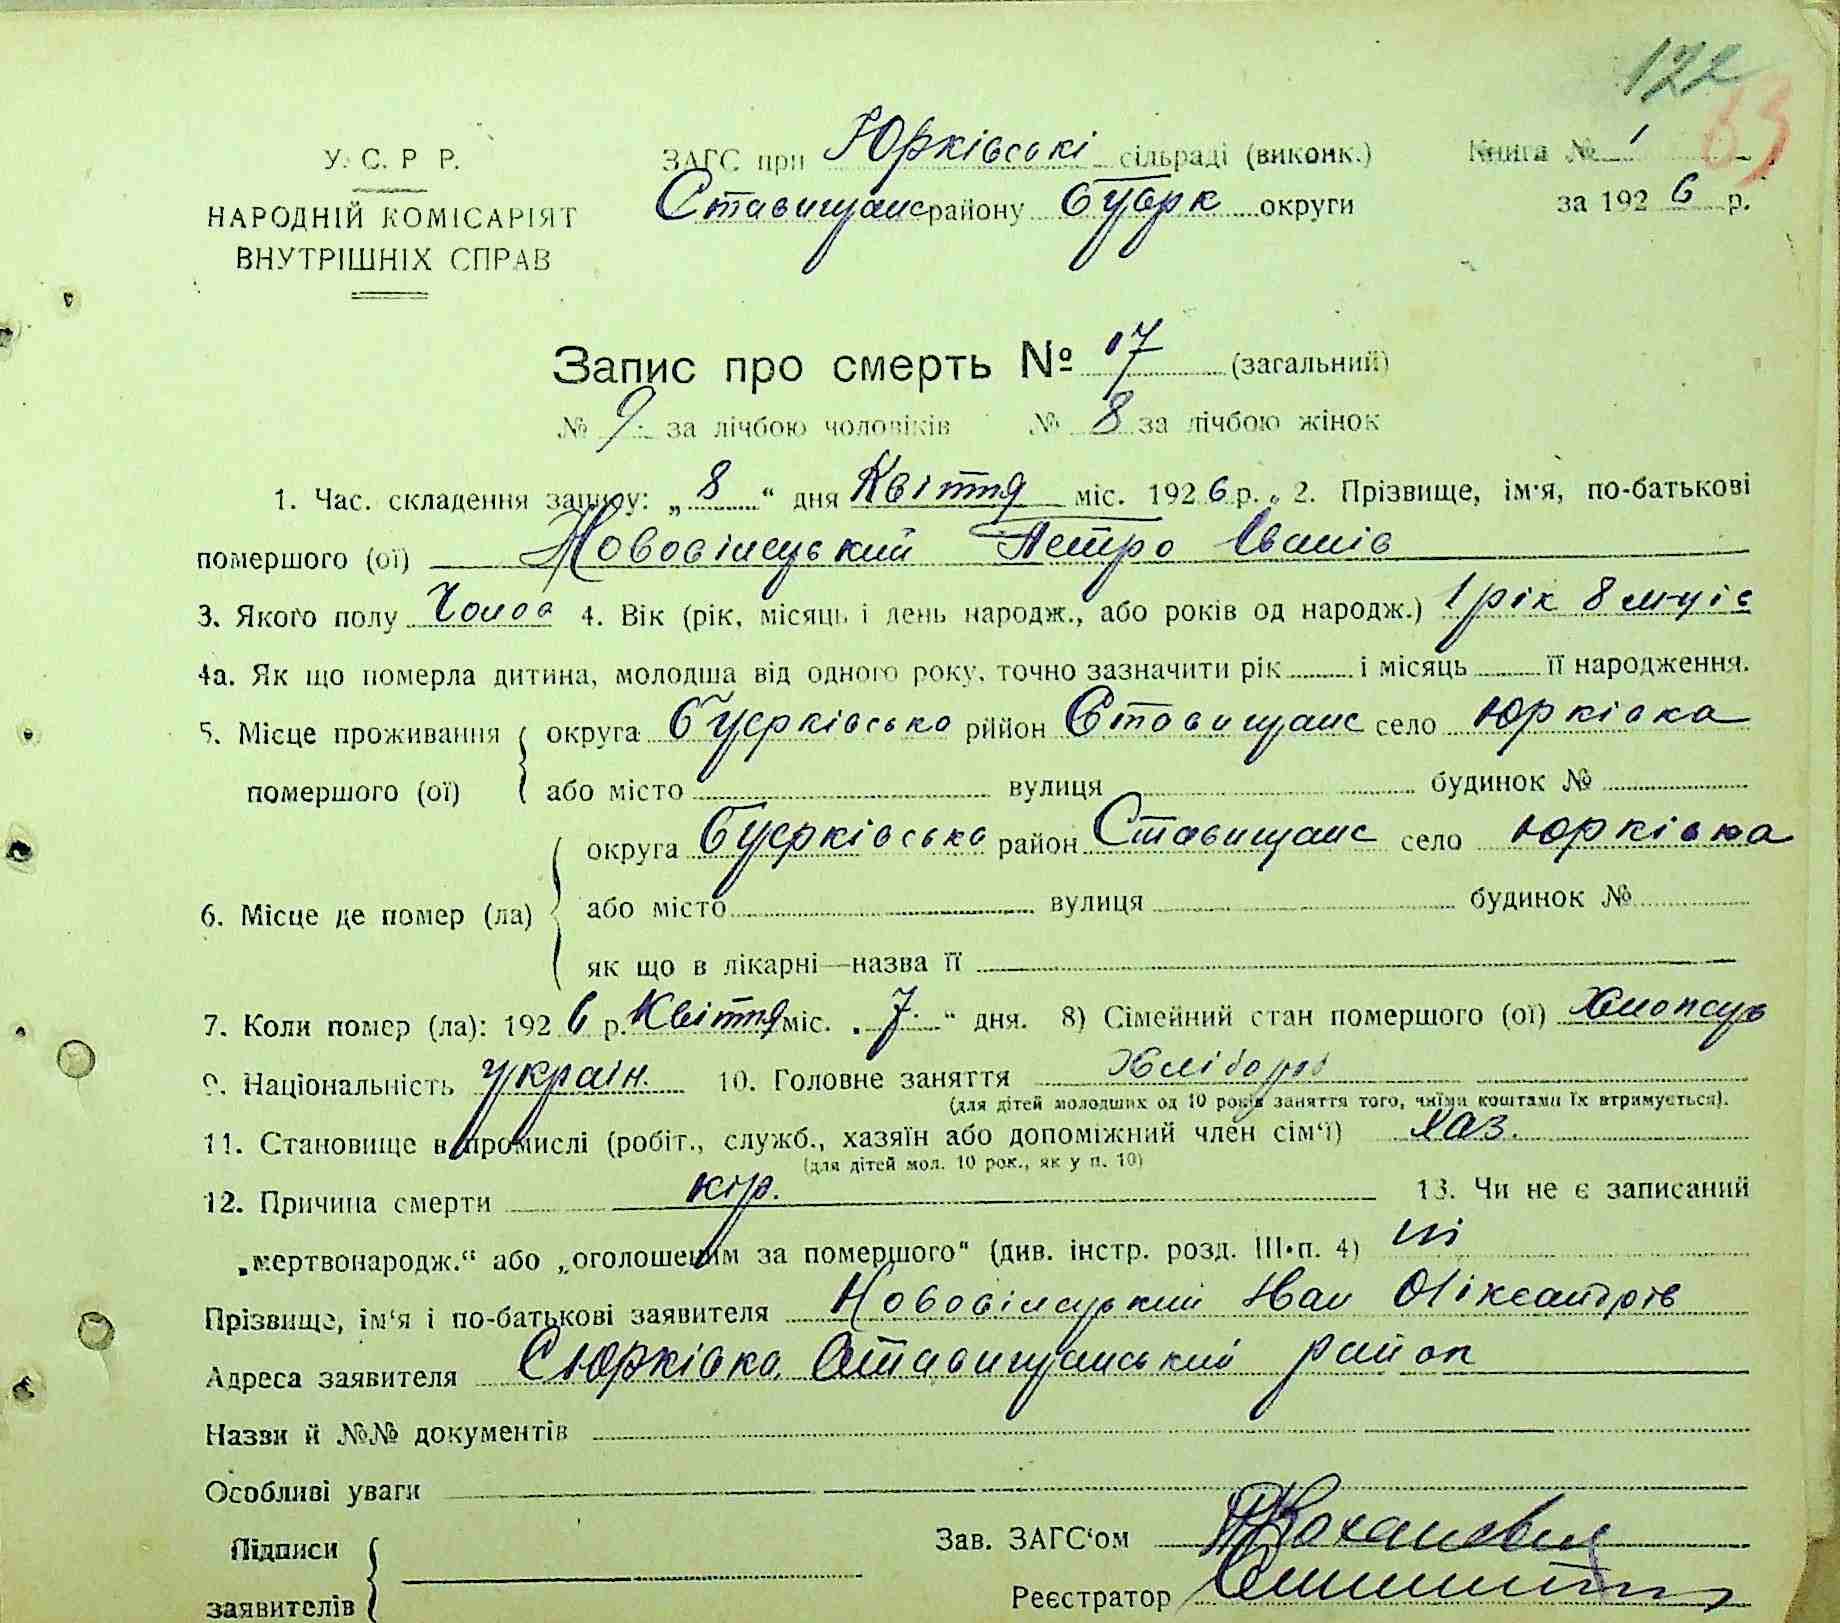 122
83
У. С. Р Р.
НАРОДНІЙ КОМІСАРІЯТ
ВНУТРІШНІХ СПРАВ
ЗАГС при Юрківські сільраді (виконк.)
Ставищанс району Буцерк округи
Книга № 1
за 1926 р.
Запис про смерть № 17 (загальний)
№ 9 за лічбою чоловіків № 8 за лічбою жінок
1. Час. складення запису: „8“ дня Квітня міс. 1926 р. 2. Прізвище, ім'я, по-батькові
помершого (ої) Нововілеський Петро Іванів
3. Якого полу Чолов 4. Вік (рік, місяць і день народж., або років од народж.) 1 рік 8 м-ціс
4а. Як що померла дитина, молодша від одного року, точно зазначити рік і місяць її народження.
5. Місце проживання помершого (ої) округа Буцерківсько рййон Ставищанс село Юрківка
або місто вулиця будинок №
6. Місце де помер (ла) округа Буцерківсько район Ставищанс село Юрківка
або місто вулиця будинок №
як що в лікарні—назва її
7. Коли помер (ла): 1926 р. Квітня міс. „7“ дня. 8) Сімейний стан помершого (ої) хлопець
9. Національність україн. 10. Головне заняття Хлібороб
(для дітей молодших од 10 років заняття того, чиїми коштами їх втримується).
11. Становище в промислі (робіт., служб., хазяїн або допоміжний член сім'ї) Хаз.
(для дітей мол. 10 рок., як у п. 10)
12. Причина смерти кір. 13. Чи не є записаний
„мертвонародж.“ або „оголошеним за помершого“ (див. інстр. розд. III п. 4) ні
Прізвище, ім'я і по-батькові заявителя Нововілеський Іван Оліксандрів
Адреса заявителя С Юрківка, Ставищанський район
Назви й №№ документів
Особливі уваги
Підписи
заявителів
Зав. ЗАГС'ом
Реєстратор